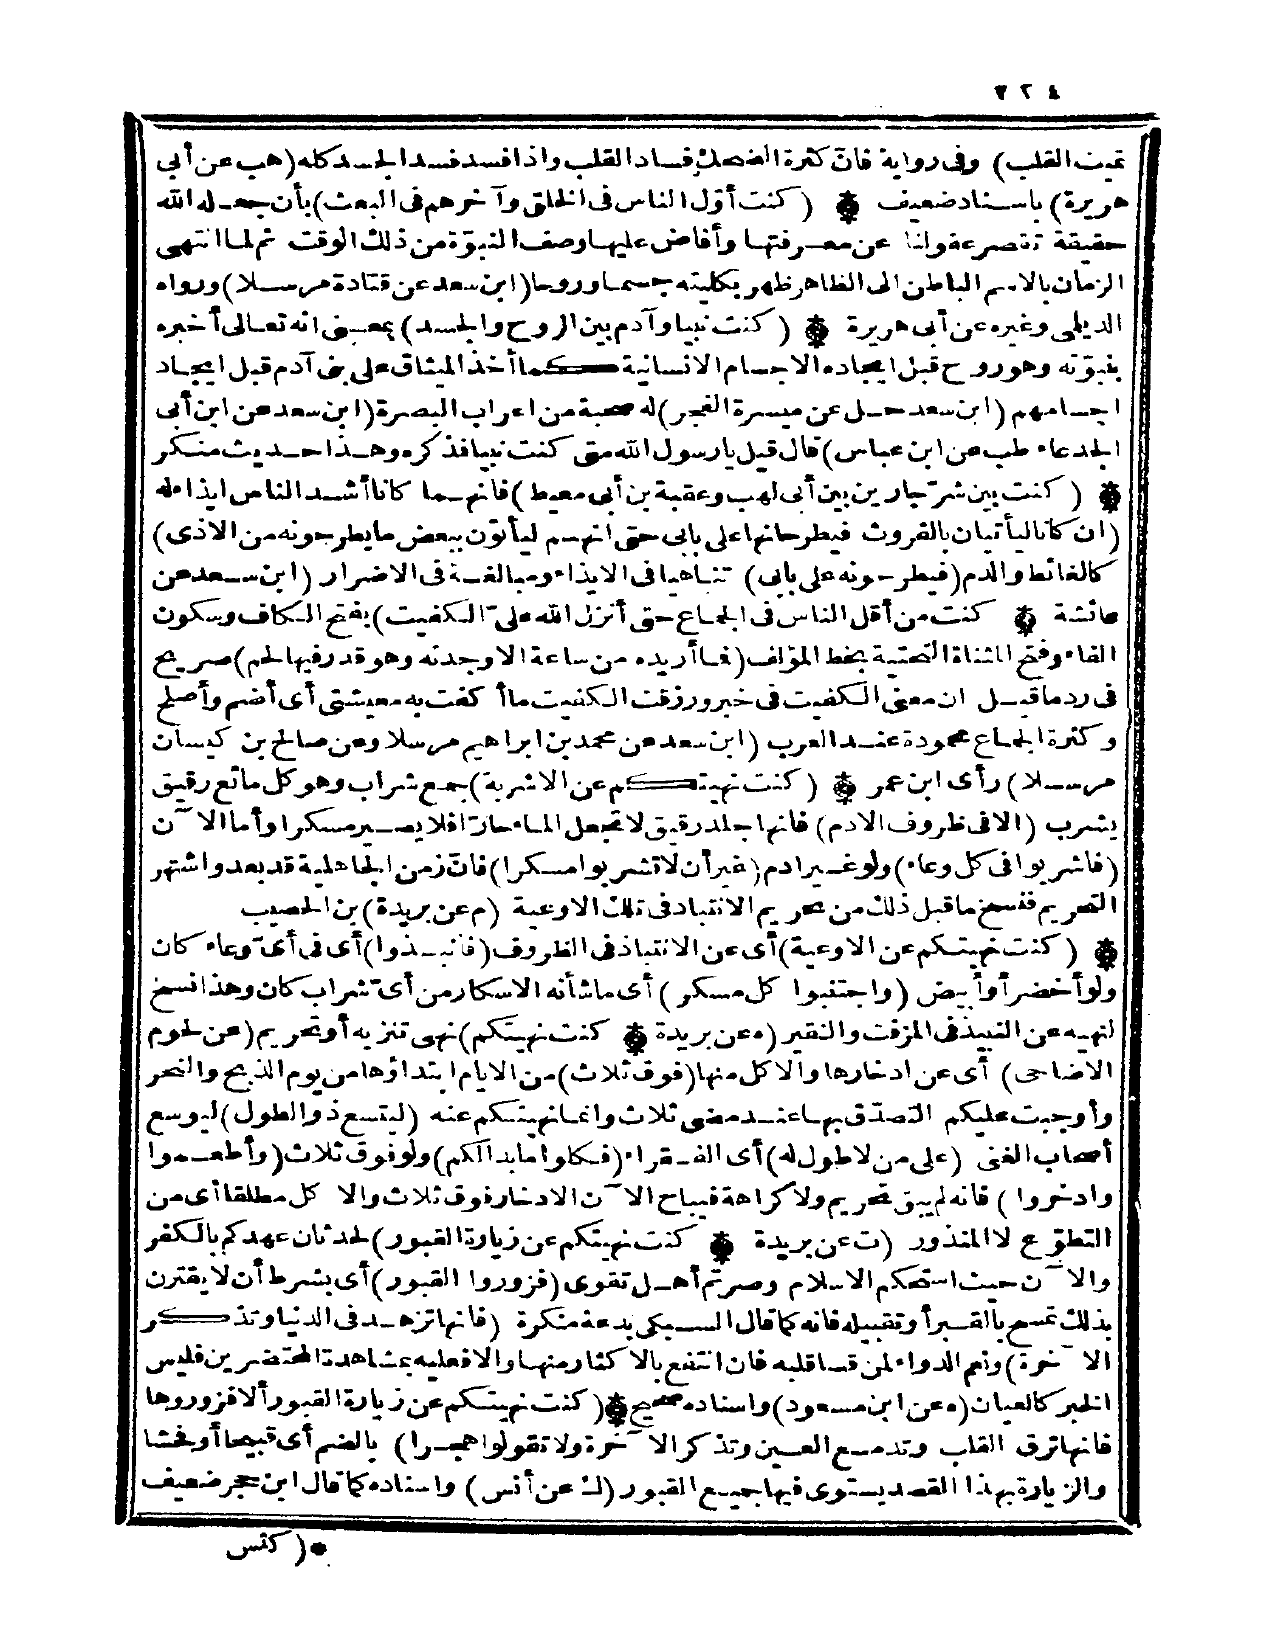 ٢٢٤
تميت القلب) وفى رواية فان كثرة الضحك فساد القلب واذا فسد فسد الجسد كله (هب عن أبى
هريرة) باسناد ضعيف ۞ (كنت أول الناس فى الخلق وآخرهم فى البعث) بأن جعله الله
حقيقة تقصر عقولنا عن معرفتها وأفاض عليها وصف النبوّة من ذلك الوقت ثم لما انتهى
الزمان بالاسم الباطن الى الظاهر ظهر بكليته جسما وروحا (ابن سعد عن قتادة مرسلا) ورواه
الديلى وغيره عن أبى هريرة ۞ (كنت نبيا وآدم بين الروح والجسد) بمعنى انه تعالى أخبره
بنبوّته وهو روح قبل ايجاده الاجسام الانسانية كما أخذ الميثاق على بنى آدم قبل ايجاد
اجسامهم (ابن سعد حل عن ميسرة الفجر) له صحبة من اعراب البصرة (ابن سعد عن ابن أبى
الجدعاء طب عن ابن عباس) قال قيل يا رسول الله متى كنت نبيا فذكره وهذا حديث منكر
۞ (كنت بين شرّ جارين بين أبى لهب وعقبة بن أبى معيط) فانهما كانا أشد الناس ايذاء له
(ان كانا ليأتيان بالفروث فيطرحانها على بابى حتى انهم ليأتون ببعض ما يطرحونه من الاذى)
كالغائط والدم (فيطرحونه على بابى) تناهيا فى الايذاء ومبالغة فى الاضرار (ابن سعد عن
عائشة ۞ كنت من أقل الناس فى الجماع حتى أنزل الله علىّ الكفيت) بفتح الكاف وسكون
الفاء وفتح المثناة التحتية بخط المؤلف (فما أريده من ساعة الا وجدته وهو قدر فيها لحم) صريح
فى رد ما قيل ان معنى الكفيت فى خبر ورزقت الكفيت ما أكفت به معيشتى أى أضم وأصلح
وكثرة الجماع محمودة عند العرب (ابن سعد عن محمد بن ابراهيم مرسلا وعن صالح بن كيسان
مرسلا) رأى ابن عمر ۞ (كنت نهيتكم عن الاشربة) جمع شراب وهو كل مائع رقيق
يشرب (الا فى ظروف الادم) فانها جلد رقيق لا تجعل الماء حارّا فلا يصير مسكرا وأما الآن
(فاشربوا فى كل وعاء) ولو غير ادم (غير أن لا تشربوا مسكرا) فانّ زمن الجاهلية قد بعد واشتهر
التحريم فنسخ ما قبل ذلك من تحريم الانتباذ فى تلك الاوعية (م عن بريدة) بن الحصيب
۞ (كنت نهيتكم عن الاوعية) أى عن الانتباذ فى الظروف (فانبذوا) أى فى أىّ وعاء كان
ولو أخضر أو أبيض (واجتنبوا كل مسكر) أى ما شأنه الاسكار من أىّ شراب كان وهذا نسخ
لنهيه عن النبيذ فى المزفت والنقير (ه عن بريدة ۞ كنت نهيتكم) نهى تنزيه أو تحريم (عن لحوم
الاضاحى) أى عن ادخارها والاكل منها (فوق ثلاث) من الايام ابتداؤها من يوم الذبح والنحر
وأوجبت عليكم التصدّق بها عند مضى ثلاث وانما نهيتكم عنه (ليتسع ذو الطول) ليوسع
أصحاب الغنى (على من لا طول له) أى الفقراء (فكلوا ما بدا لكم) ولو فوق ثلاث (وأطعموا
وادخروا) فانه لم يبق تحريم ولا كراهة فيباح الآن الادخار فوق ثلاث والاكل مطلقا أى من
التطوّع لا المنذور (ت عن بريدة ۞ كنت نهيتكم عن زيارة القبور) لحدثان عهدكم بالكفر
والآن حيث استحكم الاسلام وصرتم أهل تقوى (فزوروا القبور) أى بشرط أن لا يقترن
بذلك تمسح بالقبر أو تقبيله فانه كما قال السبكى بدعة منكرة (فانها تزهد فى الدنيا وتذكر
الآخرة) ونم الدواء لمن قسا قلبه فان انتفع بالاكثار منها والا فعليه بمشاهدة المحتضرين فليس
الخبر كالعيان (ه عن ابن مسعود) واسناده صحيح ۞ (كنت نهيتكم عن زيارة القبور ألا فزوروها
فانها ترق القلب وتدمع العين وتذكر الآخرة ولا تقولوا هجرا) بالضم أى قبيحا أو فحشا
والزيارة بهذا القصد يستوى فيها جميع القبور (ك عن أنس) واسناده كما قال ابن حجر ضعيف
* (كنس